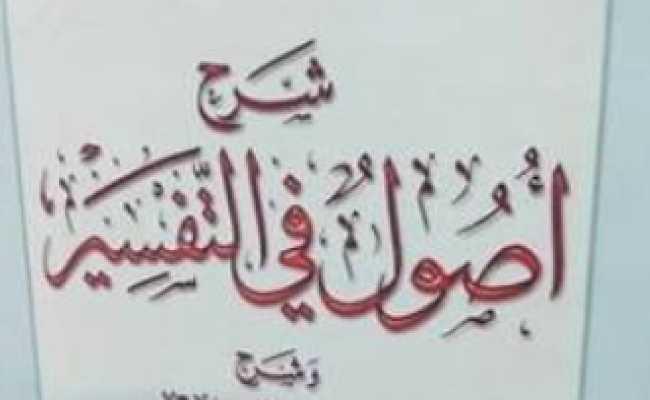 شرح
أُصُولٌ فِي التَّفْسِيْرِ
وشرح